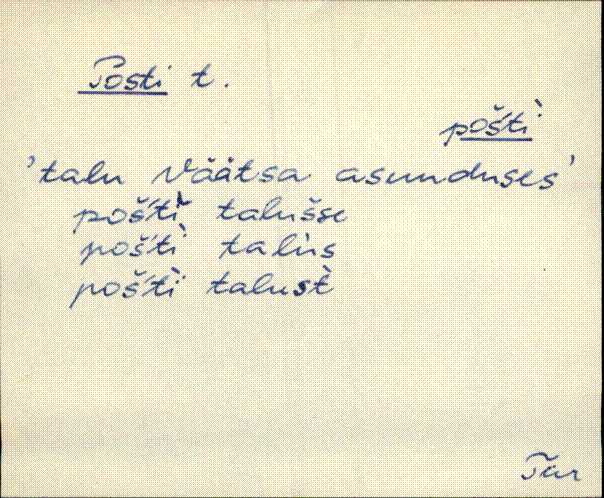 Posti t.
poštì̬
'talu Väätsa asunduses'
poštì̬ talušse
poštì̬ talùs
poštì̬ talust̀
Tür